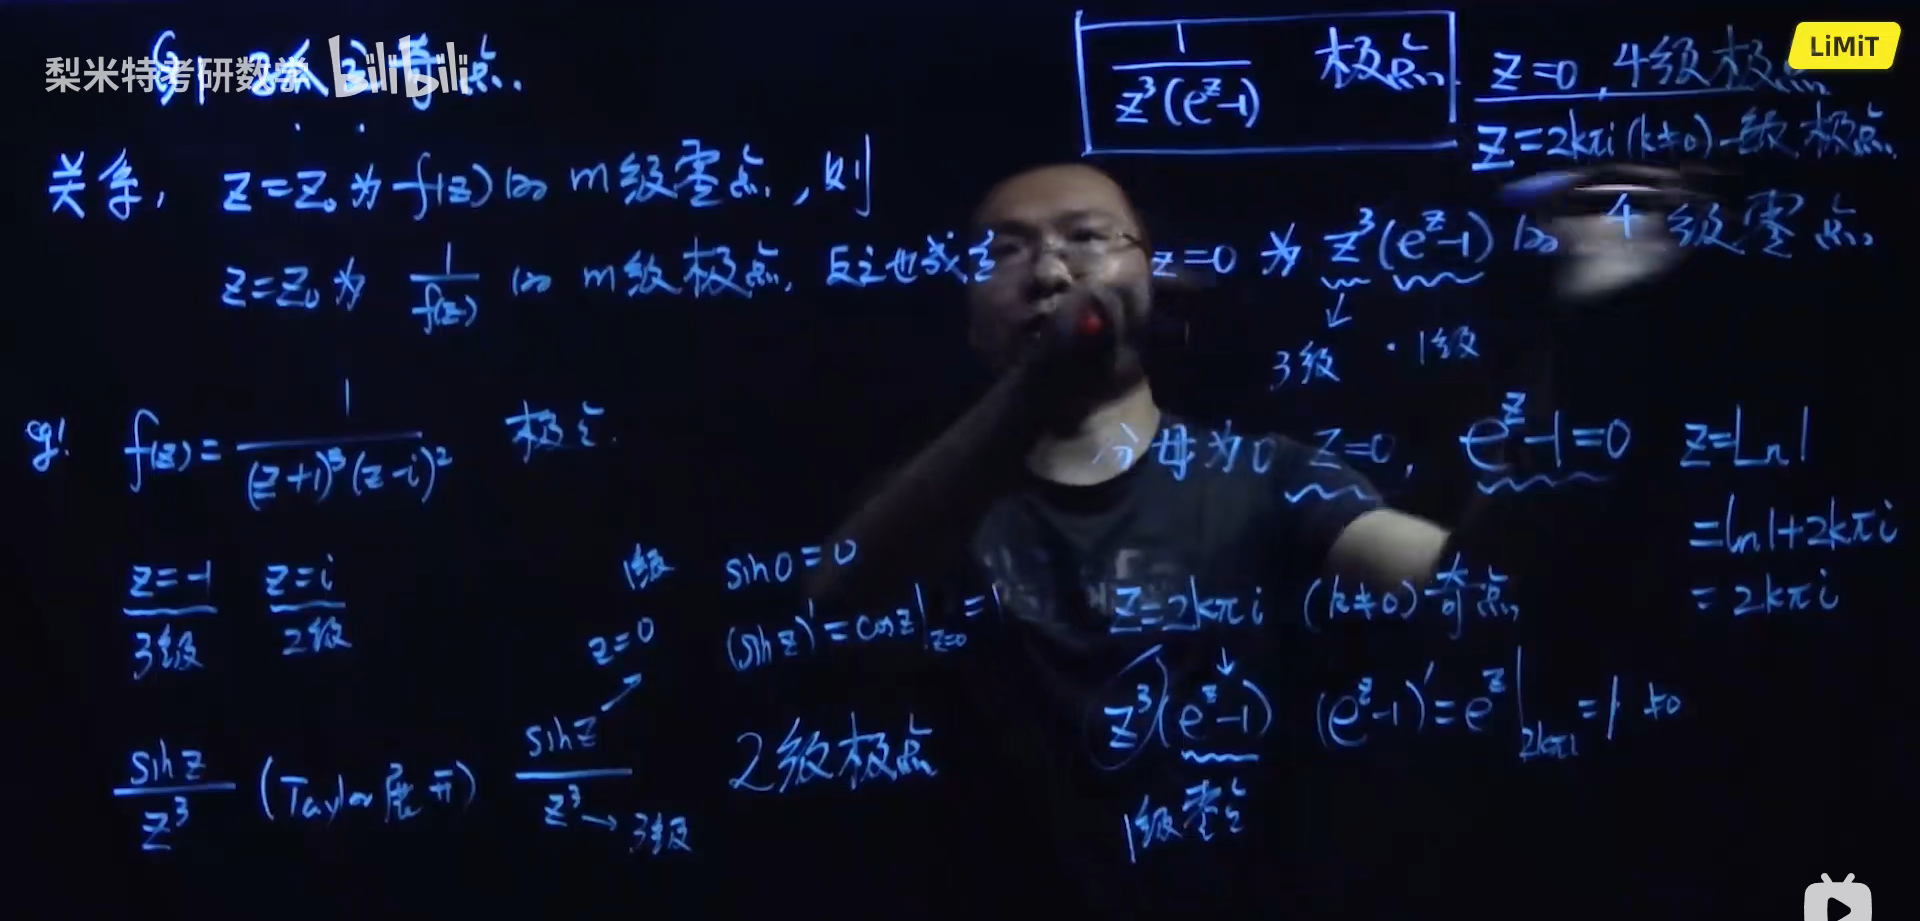 梨米特考研数学 bilibili
点.
关系, z=z₀ 为 f(z) 的 m级零点, 则
z=z₀ 为 1/f(z) 的 m级极点, 反之也成立
eg! f(z)= 1/((z+1)³(z-i)²) 极点.
z=-1 z=i
3级 2级
sinz/z³ (Taylor展开) sinz/z³ → 3级
1级
z=0
sin0=0
(sinz)'=cosz|z=0 =1
2级极点
1/(z³(e^z-1)) 极点.
LiMiT
z=0, 4级极点
z=2kπi (k≠0) 一级极点.
z=0 为 z³(e^z-1) 的 4 级零点,
↓
3级 · 1级
分母为0 z=0, e^z-1=0 z=Ln1
=ln1+2kπi
=2kπi
z=2kπi (k≠0) 奇点,
↓
z³(e^z-1) (e^z-1)'=e^z|2kπi =1 ≠0
1级零点